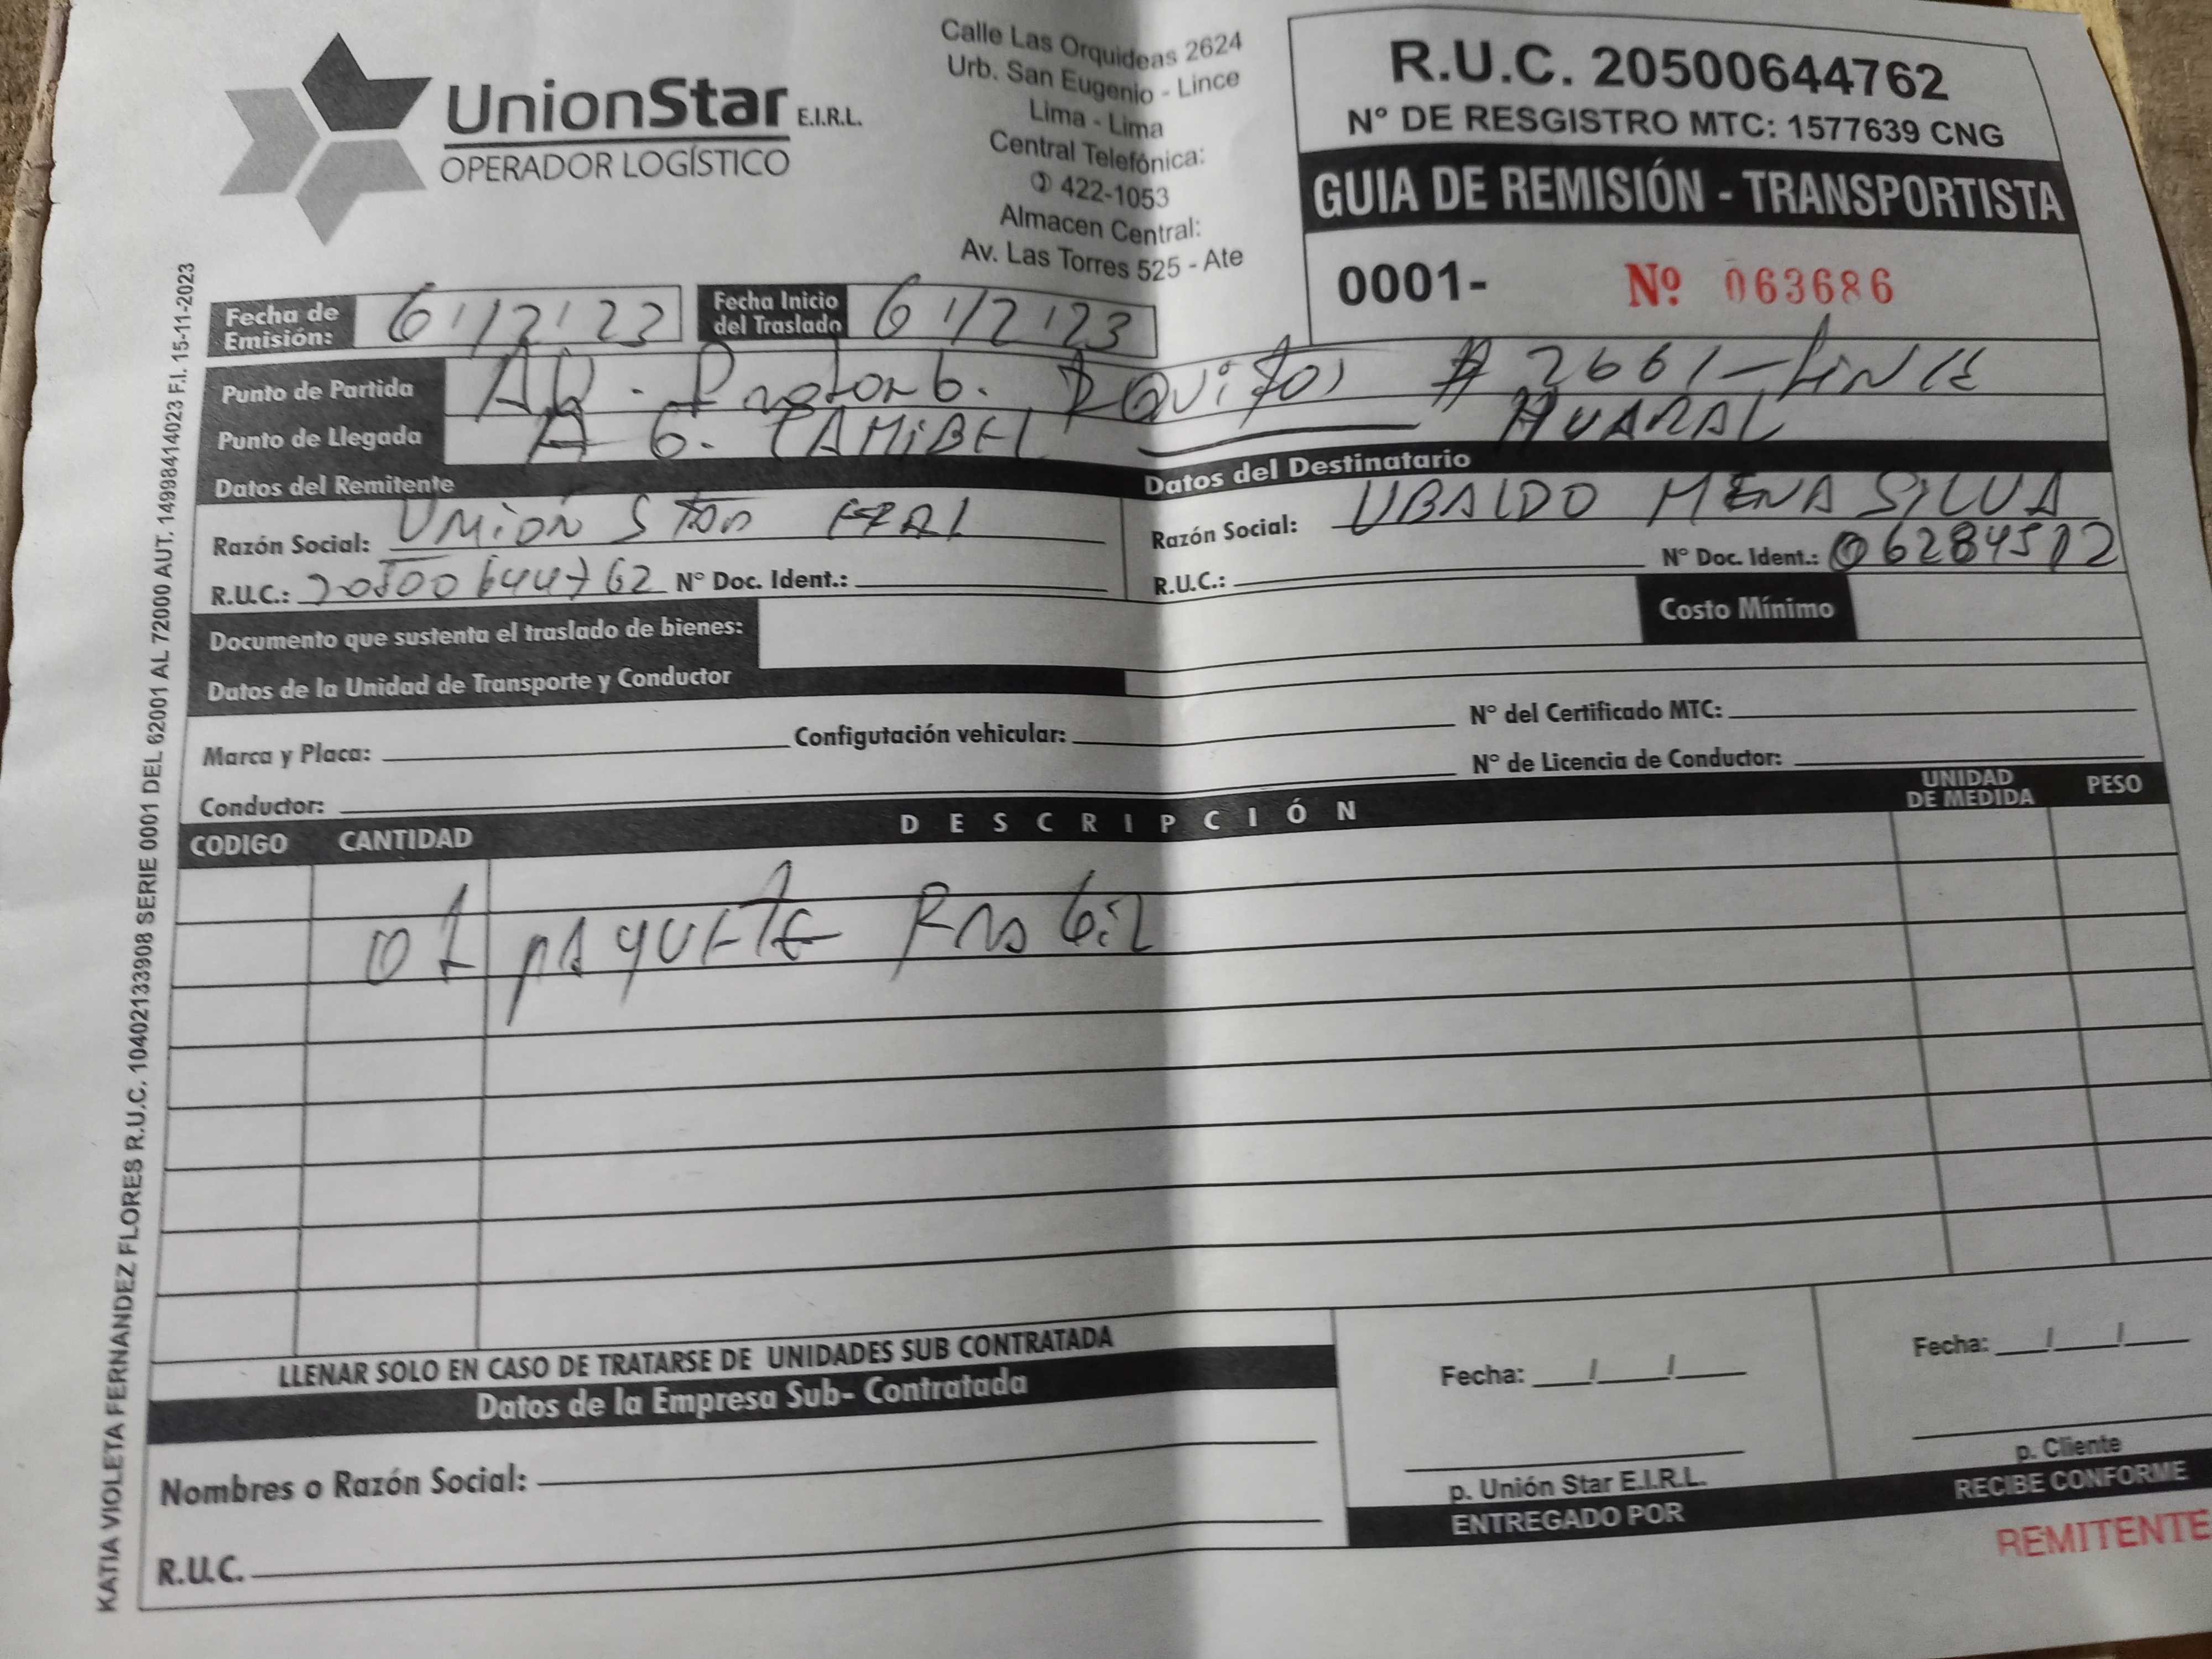 UnionStar E.I.R.L.
OPERADOR LOGÍSTICO
Calle Las Orquideas 2624
Urb. San Eugenio - Lince
Lima - Lima
Central Telefónica:
422-1053
Almacen Central:
Av. Las Torres 525 - Ate
R.U.C. 20500644762
N° DE RESGISTRO MTC: 1577639 CNG
GUIA DE REMISIÓN - TRANSPORTISTA
0001- Nº 063686
Fecha de Emisión: 6/12/23
Fecha Inicio del Traslado 6/12/23
Punto de Partida # 2661-
Punto de Llegada A 6. HUARAL
Datos del Remitente
Razón Social: UNION STAR
R.U.C.: 20500644762 N° Doc. Ident.:
Datos del Destinatario
Razón Social: UBALDO MENA SILVA
R.U.C.: N° Doc. Ident.:
Documento que sustenta el traslado de bienes:
Costo Mínimo
Datos de la Unidad de Transporte y Conductor
Marca y Placa: Configutación vehicular: N° del Certificado MTC:
Conductor: N° de Licencia de Conductor:
CODIGO CANTIDAD DESCRIPCIÓN UNIDAD DE MEDIDA PESO
01 PAQUETE
LLENAR SOLO EN CASO DE TRATARSE DE UNIDADES SUB CONTRATADA
Datos de la Empresa Sub- Contratada
Nombres o Razón Social:
R.U.C.
Fecha: / /
p. Unión Star E.I.R.L.
ENTREGADO POR
Fecha: / /
p. Cliente
RECIBE CONFORME
REMITENTE
KATIA VIOLETA FERNANDEZ FLORES R.U.C. 10402133908 SERIE 0001 DEL 62001 AL 72000 AUT. 14998414023 F.I. 15-11-2023